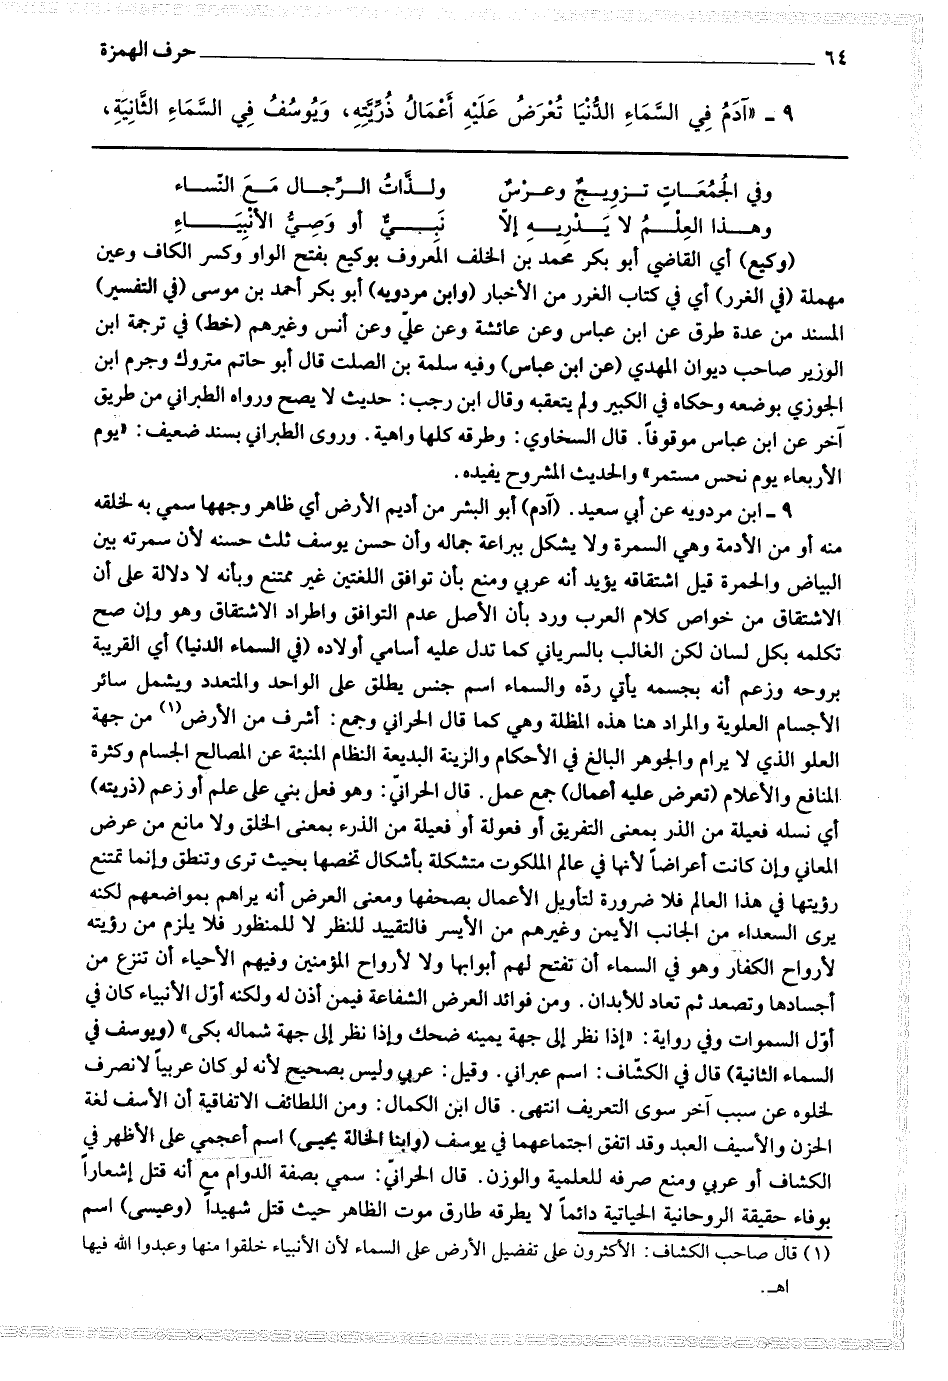 ٦٤ حرف الهمزة
٩ ـ «آدَمُ فِي السَّمَاءِ الدُّنْيَا تُعْرَضُ عَلَيْهِ أَعْمَالُ ذُرِّيَّتِهِ، وَيُوسُفُ فِي السَّمَاءِ الثَّانِيَةِ،
وفي الجُمُعَاتِ تـزويـجٌ وعـرْسٌ ولـذَّاتُ الـرِّجال مَـعَ النّساء
وهـذا العِلْـمُ لا يَـدْرِيـهِ إلاّ نَبِـيٌّ أو وَصِيُّ الأنْبِيَـاءِ
(وكيع) أي القاضي أبو بكر محمد بن الخلف المعروف بوكيع بفتح الواو وكسر الكاف وعين
مهملة (في الغرر) أي في كتاب الغرر من الأخبار (وابن مردويه) أبو بكر أحمد بن موسى (في التفسير)
المسند من عدة طرق عن ابن عباس وعن عائشة وعن عليّ وعن أنس وغيرهم (خط) في ترجمة ابن
الوزير صاحب ديوان المهدي (عن ابن عباس) وفيه سلمة بن الصلت قال أبو حاتم متروك وجرم ابن
الجوزي بوضعه وحكاه في الكبير ولم يتعقبه وقال ابن رجب: حديث لا يصح ورواه الطبراني من طريق
آخر عن ابن عباس موقوفاً. قال السخاوي: وطرقه كلها واهية. وروى الطبراني بسند ضعيف: «يوم
الأربعاء يوم نحس مستمر» والحديث المشروح يفيده.
٩ ـ ابن مردويه عن أبي سعيد. (آدم) أبو البشر من أديم الأرض أي ظاهر وجهها سمي به لخلقه
منه أو من الأدمة وهي السمرة ولا يشكل ببراعة جماله وأن حسن يوسف ثلث حسنه لأن سمرته بين
البياض والحمرة قيل اشتقاقه يؤيد أنه عربي ومنع بأن توافق اللغتين غير ممتنع وبأنه لا دلالة على أن
الاشتقاق من خواص كلام العرب ورد بأن الأصل عدم التوافق واطراد الاشتقاق وهو وإن صح
تكلمه بكل لسان لكن الغالب بالسرياني كما تدل عليه أسامي أولاده (في السماء الدنيا) أي القريبة
بروحه وزعم أنه بجسمه يأتي ردّه والسماء اسم جنس يطلق على الواحد والمتعدد ويشمل سائر
الأجسام العلوية والمراد هنا هذه المظلة وهي كما قال الحراني وجمع: أشرف من الأرض(١) من جهة
العلو الذي لا يرام والجوهر البالغ في الأحكام والزينة البديعة النظام المنبئة عن المصالح الجسام وكثرة
المنافع والأعلام (تعرض عليه أعمال) جمع عمل. قال الحرانيّ: وهو فعل بني على علم أو زعم (ذريته)
أي نسله فعيلة من الذر بمعنى التفريق أو فعولة أو فعيلة من الذرء بمعنى الخلق ولا مانع من عرض
المعاني وإن كانت أعراضاً لأنها في عالم الملكوت متشكلة بأشكال تخصها بحيث ترى وتنطق وإنما تمتنع
رؤيتها في هذا العالم فلا ضرورة لتأويل الأعمال بصحفها ومعنى العرض أنه يراهم بمواضعهم لكنه
يرى السعداء من الجانب الأيمن وغيرهم من الأيسر فالتقييد للنظر لا للمنظور فلا يلزم من رؤيته
لأرواح الكفار وهو في السماء أن تفتح لهم أبوابها ولا لأرواح المؤمنين وفيهم الأحياء أن تنزع من
أجسادها وتصعد ثم تعاد للأبدان. ومن فوائد العرض الشفاعة فيمن أذن له ولكنه أوّل الأنبياء كان في
أوّل السموات وفي رواية: «إذا نظر إلى جهة يمينه ضحك وإذا نظر إلى جهة شماله بكى» (ويوسف في
السماء الثانية) قال في الكشّاف: اسم عبراني. وقيل: عربي وليس بصحيح لأنه لو كان عربياً لانصرف
لخلوه عن سبب آخر سوى التعريف انتهى. قال ابن الكمال: ومن اللطائف الاتفاقية أن الأسف لغة
الحزن والأسيف العبد وقد اتفق اجتماعهما في يوسف (وابنا الخالة يحيى) اسم أعجمي على الأظهر في
الكشاف أو عربي ومنع صرفه للعلمية والوزن. قال الحرانيّ: سمي بصفة الدوام مع أنه قتل إشعاراً
بوفاء حقيقة الروحانية الحياتية دائماً لا يطرقه طارق موت الظاهر حيث قتل شهيداً (وعيسى) اسم
(١) قال صاحب الكشاف: الأكثرون على تفضيل الأرض على السماء لأن الأنبياء خلقوا منها وعبدوا الله فيها
اهـ.